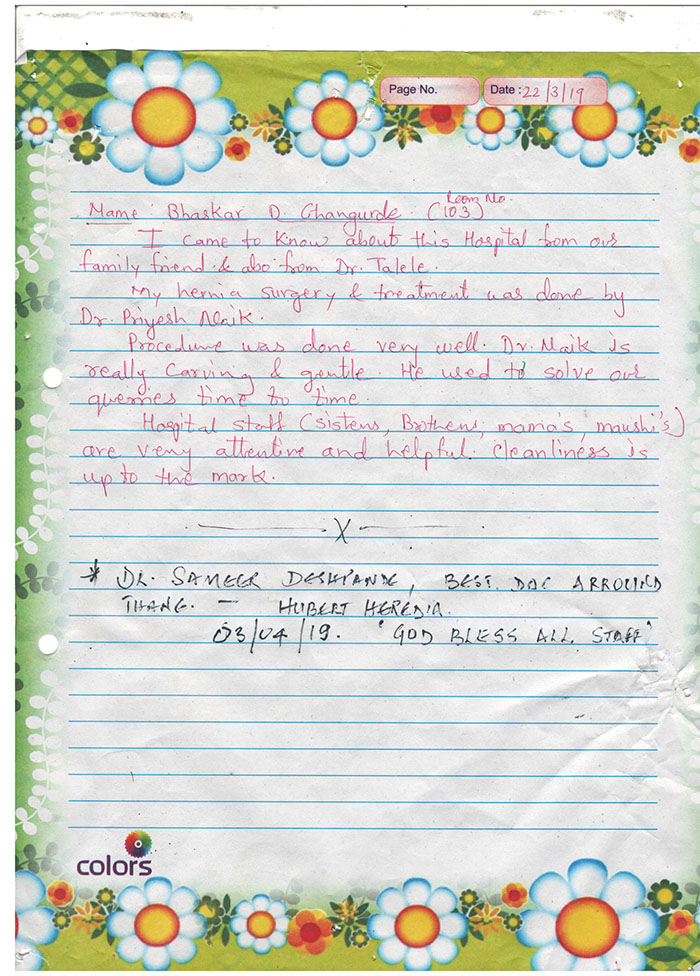 Page No.
Date : 22/3/19
Room No.
Name : Bhaskar D Ghangurde. (103)
I came to know about this Hospital from our
family friend & also from Dr. Talele.
My hernia surgery & treatment was done by
Dr. Priyesh Naik.
Procedure was done very well. Dr. Naik is
really carving & gentle. He used to solve our
querries time to time.
Hospital staff (sisters, Brothers, mama's, maushi's)
are very attentive and helpful. Cleanliness is
up to the mark.
X
* DR. SAMEER DESHPANDE, BEST DOC ARROUND
THANE. — HUBERT HEREDIA.
03/04/19. "GOD BLESS ALL STAFF"
colors